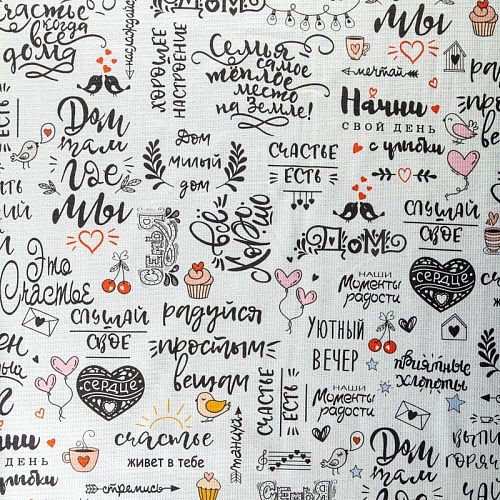 счастье
когда
все
дома
наслаждайся
ХОРОШЕЕ
НАСТРОЕНИЕ
Семья
самое
тёплое
место
на Земле!
Дом
мы
мечтай
Начни
СВОЙ ДЕНЬ
с улыбки
Дом
там
где
мы
Дом
милый
дом
СЧАСТЬЕ
ЕСТЬ
ЕСТЬ
СЛУШАЙ
СВОЕ
Это
Счастье
СЕМЬЯ
всё
хорошо
ДОМ
НАШИ
Моменты
радости
сердце
СЛУШАЙ
СВОЕ
радуйся
простым
вещам
УЮТНЫЙ
ВЕЧЕР
приятные
хлопоты
сердце
СЧАСТЬЕ
ЕСТЬ
НАШИ
Моменты
радости
Начни
СВОЙ ДЕНЬ
с улыбки
счастье
живет в тебе
танцуй
стремись
Дом
там
где
СЕМЬЯ